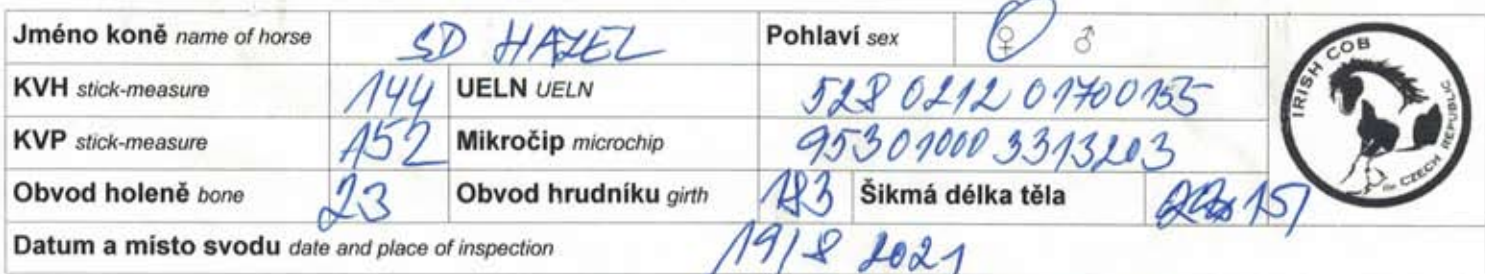 Jméno koně name of horse SD HAZEL Pohlaví sex ♀ ♂
KVH stick-measure 144 UELN UELN 528 0212 01700155
KVP stick-measure 152 Mikročip microchip 95301000 3313203
Obvod holeně bone 23 Obvod hrudníku girth 183 Šikmá délka těla 157
Datum a místo svodu date and place of inspection 19/8 2021
IRISH COB
CZECH REPUBLIC